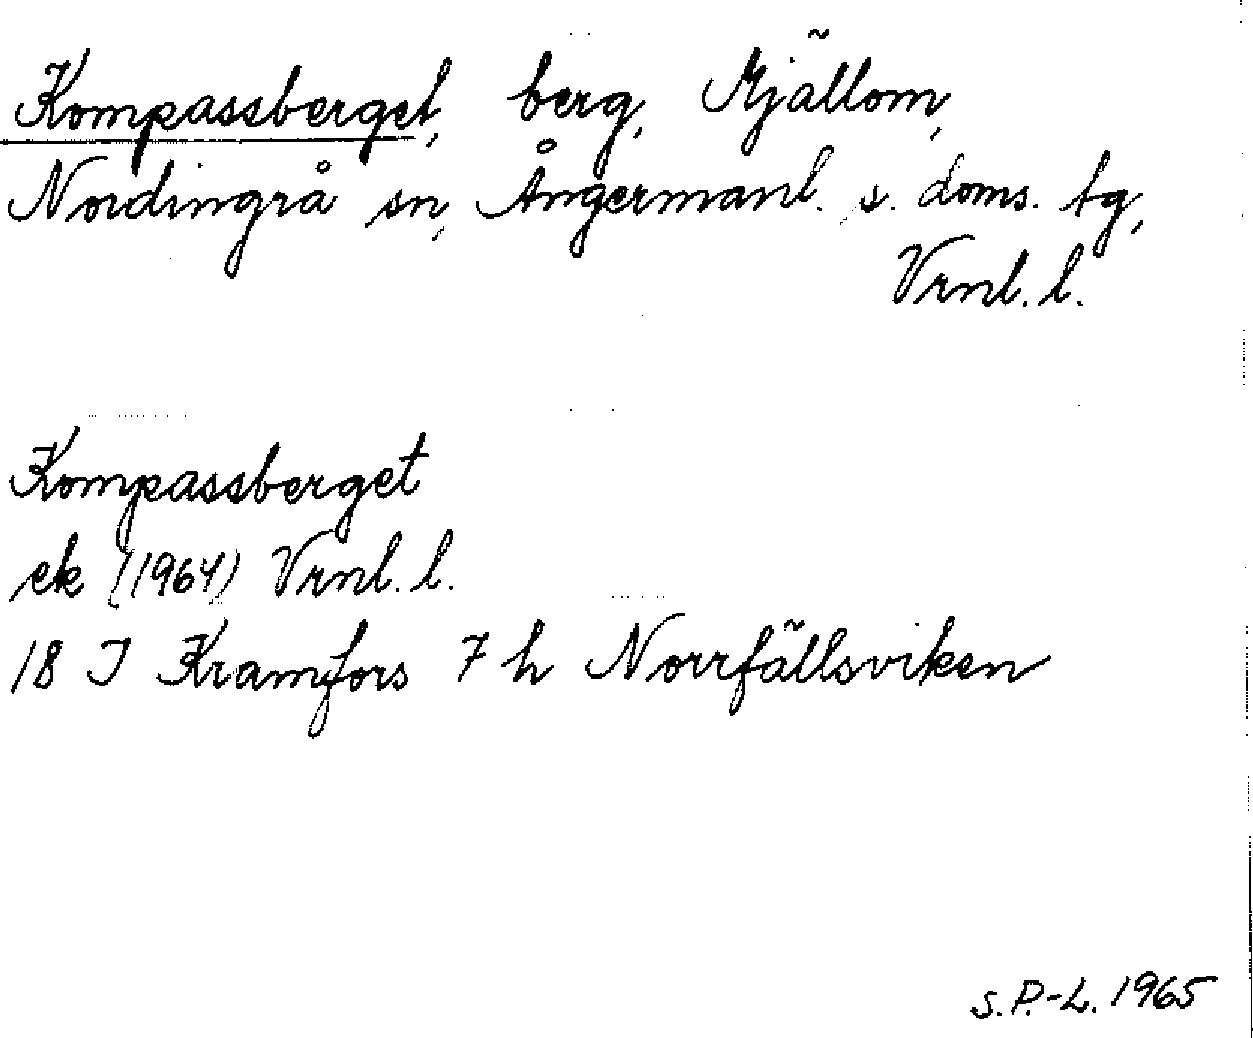 Kompassberget, berg, Mjällom,
Nordingrå sn, Ångermanl. s. doms. tg,
Vrnl. l.
Kompassberget
ek (1964) Vrnl. l.
18 I Kramfors 7 h Norrfällsviken
S. P.-L. 1965